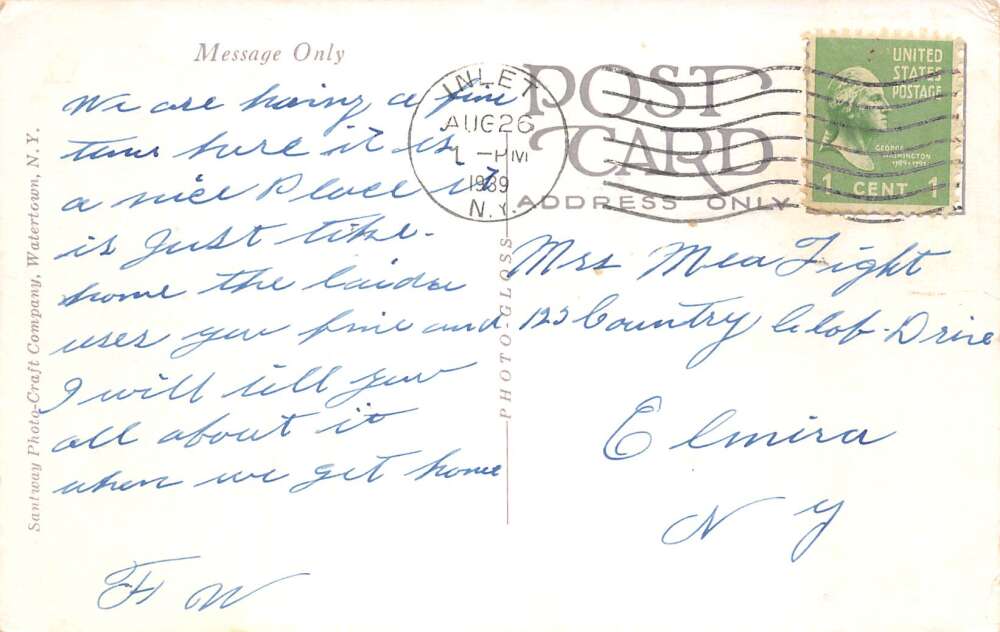 Message Only
We are having a fine
time here it is
a nice Place it
is Just like
home the laides
uses you fine and
I will tell you
all about it
when we get home
F W
Santway Photo-Craft Company, Watertown, N.Y.
PHOTO-GLOSS
POST CARD
ADDRESS ONLY
INLET
AUG 26
1 - PM
1939
N.Y.
UNITED
STATES
POSTAGE
GEORGE
WASHINGTON
1 CENT 1
Mrs Mea Fight
123 Country Clob-Drive
Elmira
N Y